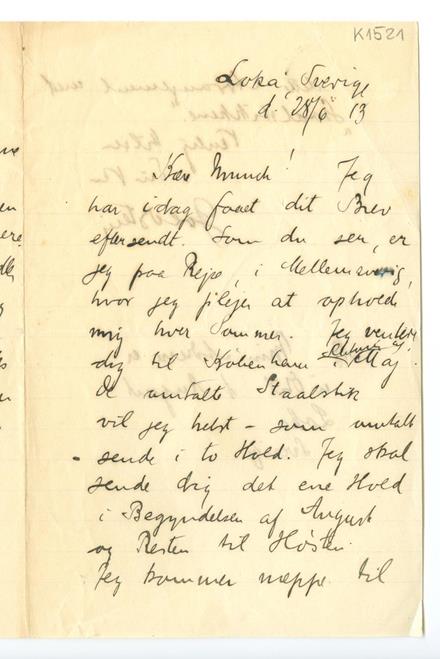 K1521
Loka, Sverige
d. 28/6 13
Kære Munch! Jeg
har idag faaet dit Brev
eftersendt. Som du ser, er
jeg paa Rejse, i Mellemsverig,
hvor jeg plejer at opholde
mig hver Sommer. Jeg venter
dig til København i
De omtalte Staalstik
vil jeg helst – som omtalt
– sende i to Hold. Jeg skal
sende dig det ene Hold
i Begyndelsen af August
og Resten til Høsten.
Jeg kommer næppe til